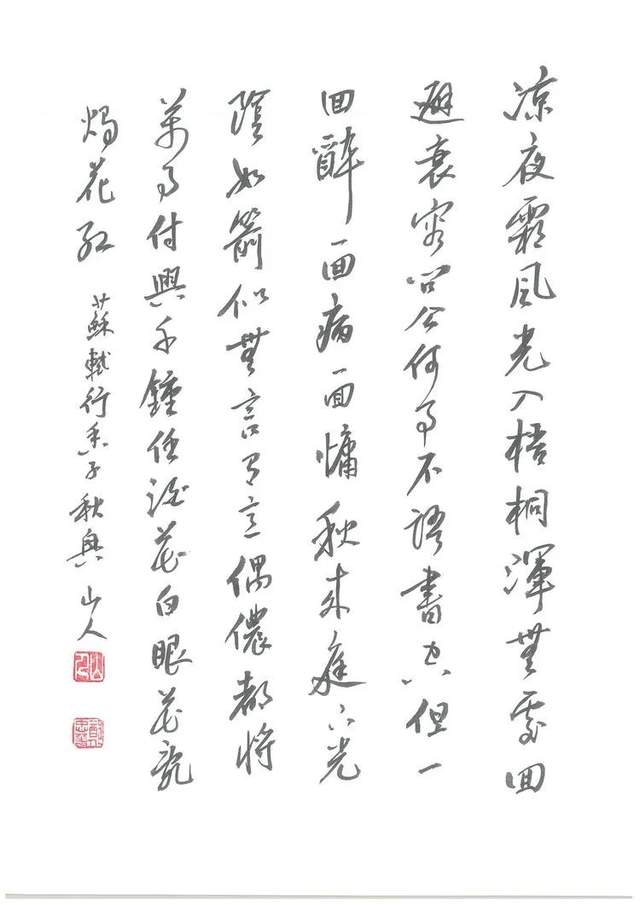 涼夜霜風先入梧桐渾無處回
避衰容問公何事不語書空但一
回醉一回病一回慵秋來庭下光
陰如箭似無言有意傷儂都將
萬事付與千鍾任酒花白眼花亂
燭花紅 蘇軾行香子秋興 山人
山人